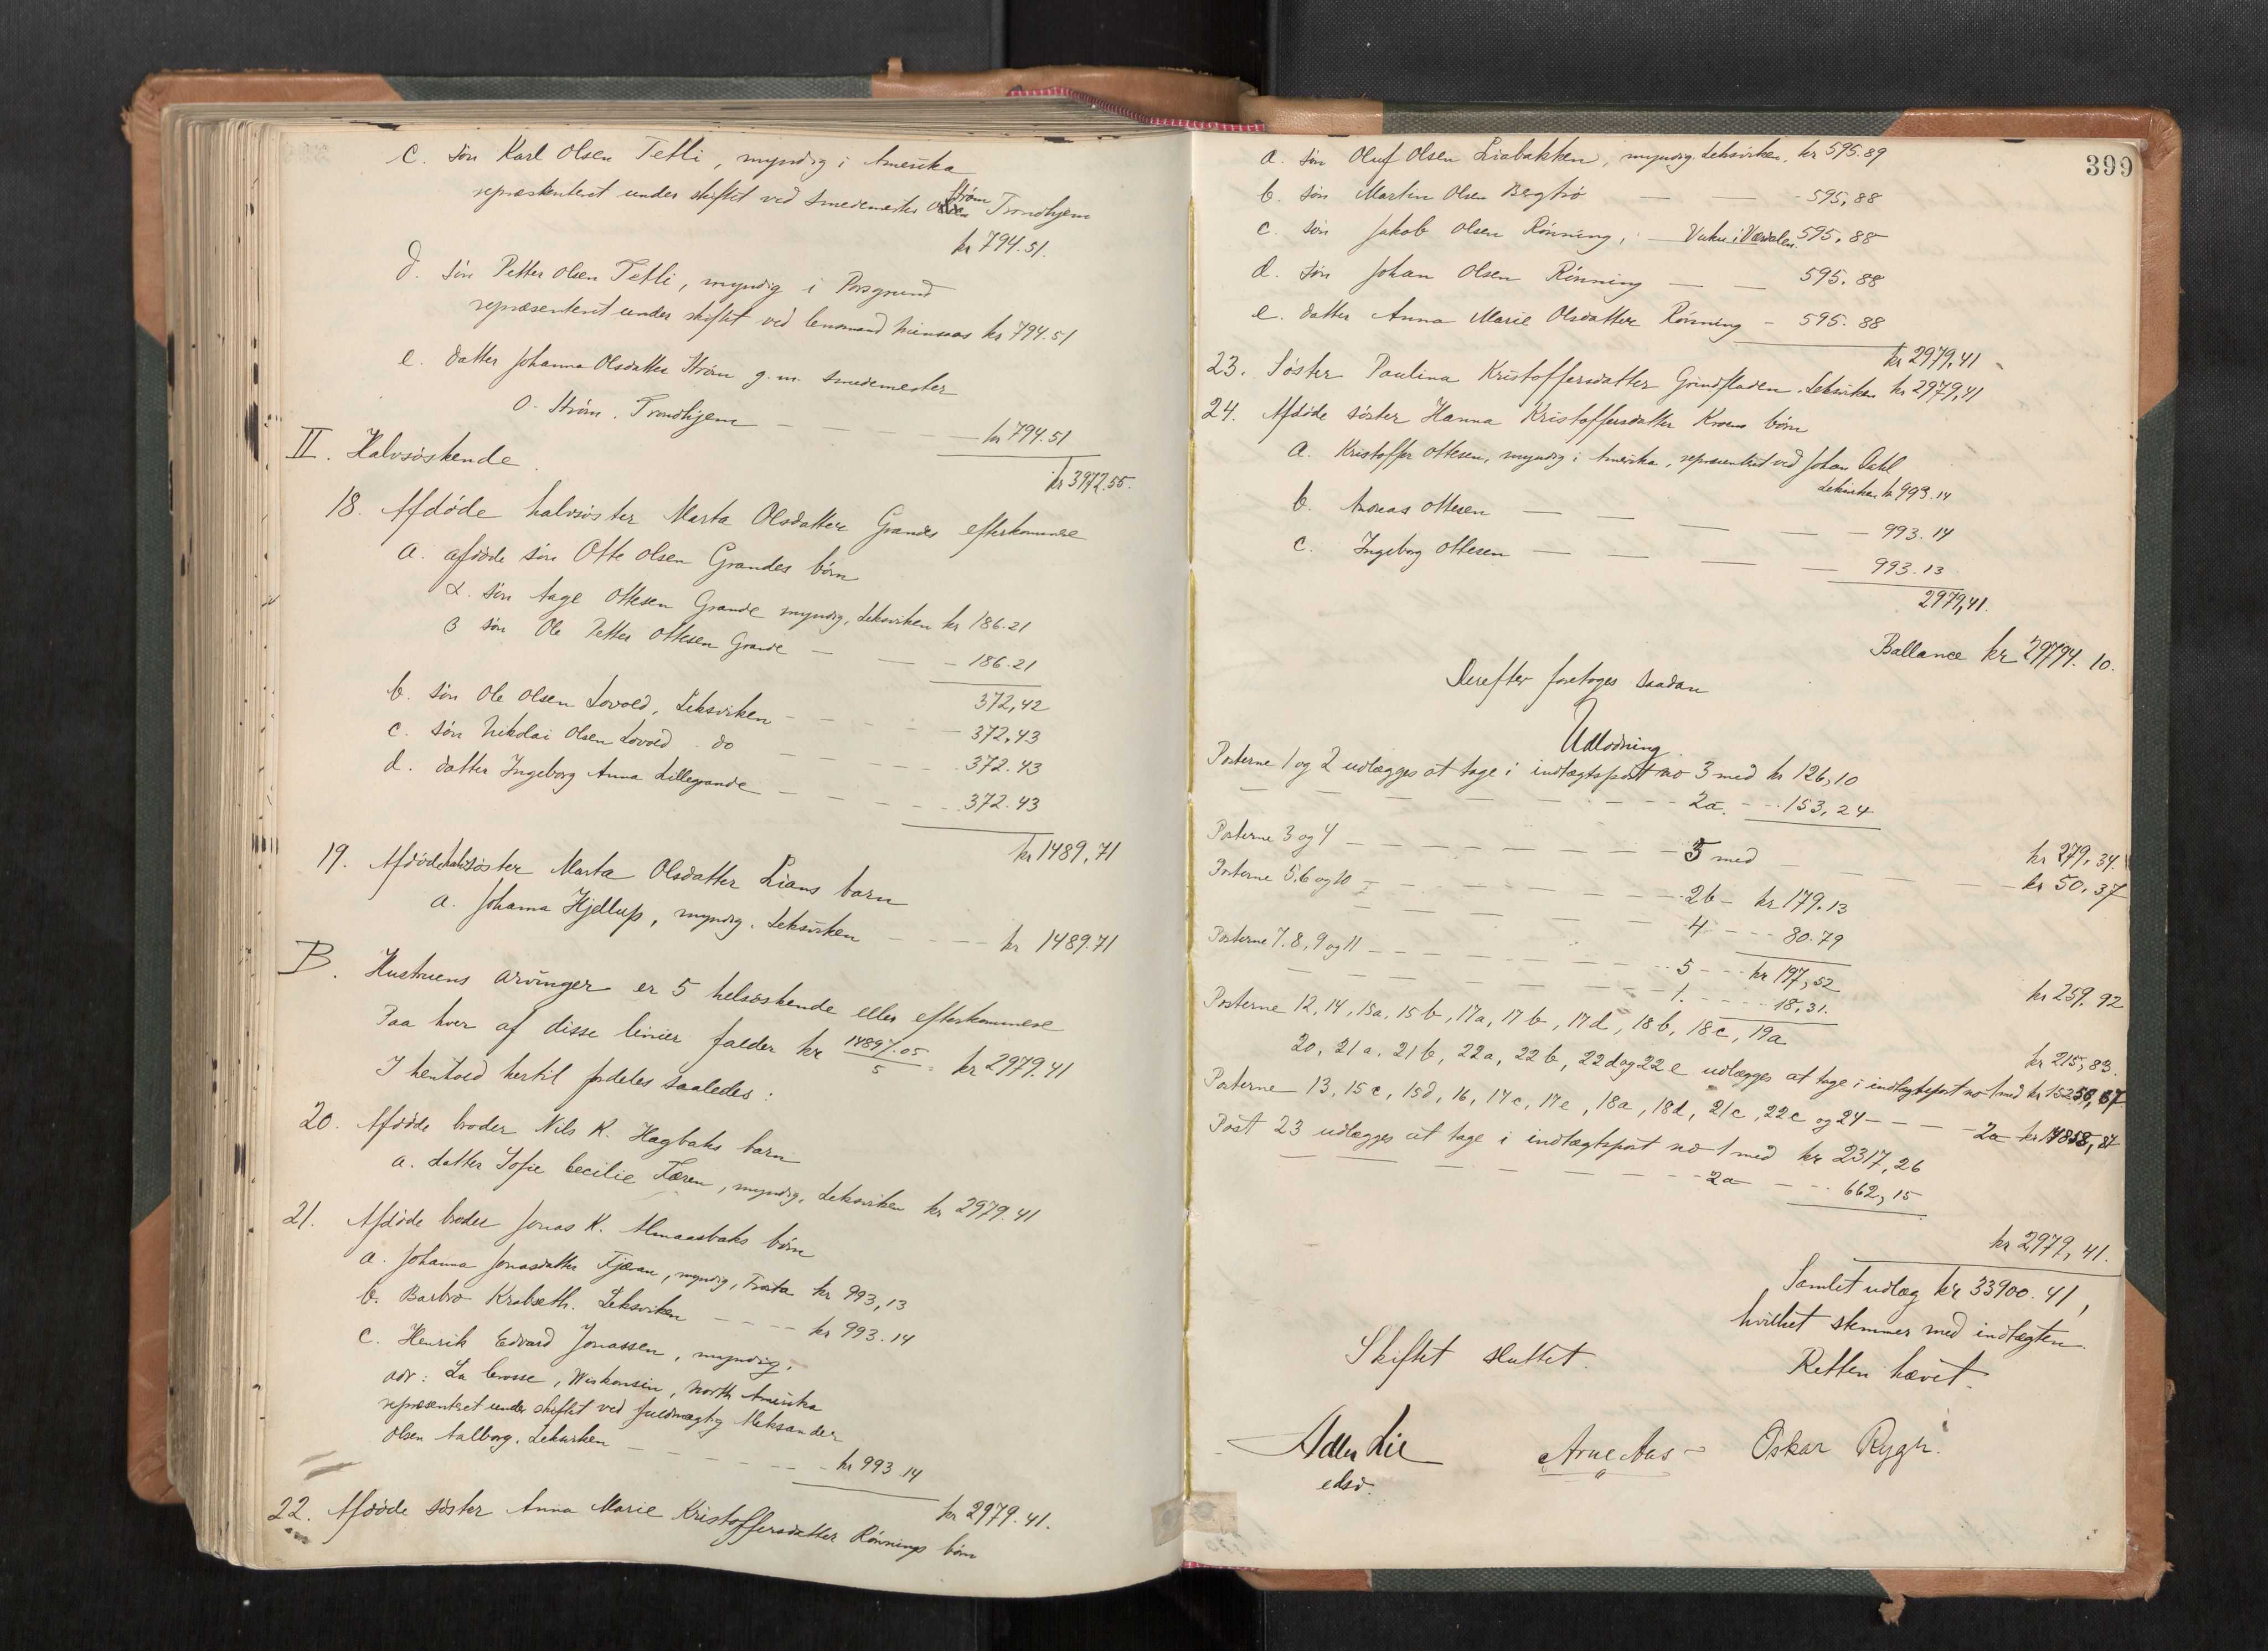 c. søn Karl Olsen Tetli, myndig i Amerika
repræsenteret under skiftet ved smedemester Strøm Trondhjem
kr 794.51.
d. søn Petter Olsen Tetli, myndig i Porsgrund
repræsenteret under skiftet ved lensmand kr 794.51
e. datter Johanna Olsdatter Strøm g.m. smedemester
O. Strøm. Trondhjem — — — — kr 794.51
kr 3972.55.
II. Halvsøskende.
18. Afdøde halvsøster Marta Olsdatter Grandes efterkommere
a. afdøde søn Otte Olsen Grandes børn
α. søn Aage Ottesen Grande myndig, Leksviken kr 186.21
β søn Ole Petter Ottesen Grande — — — 186.21
372,42
b. søn Ole Olsen Lovold, Leksviken — — — — 372,43
c. søn Nikolai Olsen Lovold do — — — — 372.43
d. datter Ingeborg Anna Lillegrande — — — — 372.43
kr 1489,71
19. Afdøde halvsøster Marta Olsdatter Lians barn
a. Johanna Hjellup, myndig. Leksviken — — — kr 1489.71
B. Hustruens arvinger er 5 helsøskende eller efterkommere
Paa hver af disse linier falder kr 14897.05/5 = kr 2979.41
I henhold hertil fordeles saaledes:
20. Afdøde broder Nils K. Hagbaks barn
a. datter Sofie Cecilie Færen, myndig, Leksviken kr 2979.41
21. Afdøde broder Jonas K. Almaasbaks børn
a. Johanna Jonasdatter Fjæran, myndig, Frosta kr 993,13
b. Barbro Krabseth. Leksviken — — — — kr 993.14
c. Henrik Edvard Jonassen, myndig,
adr: La Crosse, Wiskonsin, North Amerika
repræsenteret under skiftet ved fuldmægtig Aleksander
Olsen Aalberg. Leksviken — — — — — kr 993.14
kr 2979.41.
22. Afdøde søster Anna Marie Kristoffersdatter Rønnings børn
399
a. søn Oluf Olsen Liabakken, myndig. Leksviken. kr 595.89
b. søn Martin Olsen Bergtrø — — — 595,88
c. søn Jakob Olsen Rønning, — Vuku i Værdalen. 595.88
d. søn Johan Olsen Rønning — — 595.88
e. datter Anna Marie Olsdatter Rønning — 595.88
kr 2979,41
23. Søster Paulina Kristoffersdatter Grindfladen. Leksviken kr 2979,41
24. Afdøde søster Hanna Kristoffersdatter børn
a. Kristoffer Ottesen, myndig i Amerika, repræsenteret ved Johan Dahl
Leksviken kr 993.14
b. Andreas Ottesen — — — — — 993.14
c. Ingeborg Ottesen — — — — 993.13
2979,41.
Ballance kr 29794.10.
Derefter foretoges saadan
Udlodning.
Posterne 1 og 2 udlægges at tage i indtægtspost no 3 med kr 126,10
— — — — — — — 2a. - - 153,24
kr 279,34.
Posterne 3 og 4 — — — — — — — 3 med — — — — — kr 50,37
Posterne 5, 6 og 10 — — — — — — 2b - kr 179.13
— — — — — — — 4 - - - 80.79
kr 259.92
Posterne 7. 8, 9 og 11 — — — — — — — 5 - - kr 197,52
— — — — — — — 1. - - - - 18,31.
kr 215,83.
Posterne 12, 14, 15a, 15b, 17a, 17b, 17d, 18b, 18c, 19a
20, 21a. 21b, 22a, 22b, 22d og 22e udlægges at tage i indtægtspost no 1 med kr 15256,67
Posterne 13, 15c, 15d, 16, 17c, 17e, 18a, 18d, 21c, 22c og 24 — — — — 2a kr 14858,87
Post 23 udlægges at tage i indtægtspost no 1 med kr 2317,26
— — — — — — — 2a — - - 662,15
kr 2979,41.
Samlet udlæg kr 33900.41,
hvilket stemmer med indtægten.
Skiftet sluttet.
Retten hævet.
Adler Lie
edsv.
Arne Aas
Oskar Rygh.